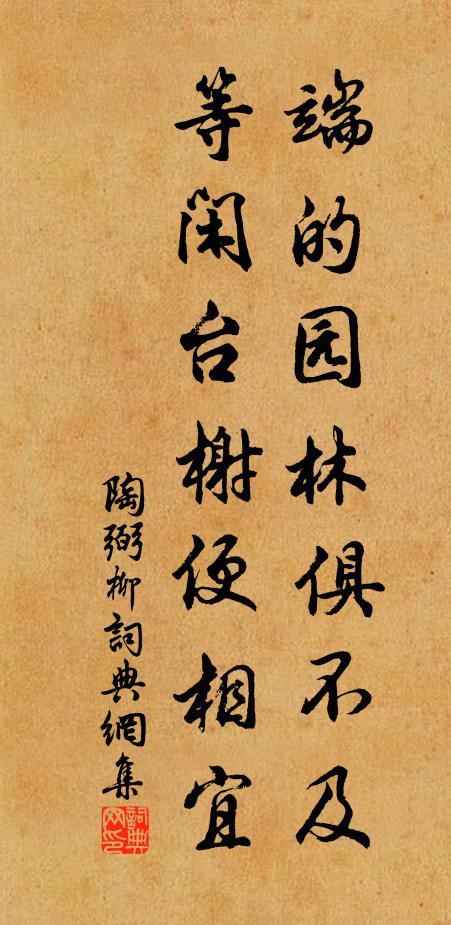 端的园林俱不及
等闲台榭便相宜
陶弼柳詞典網集
詞典网印